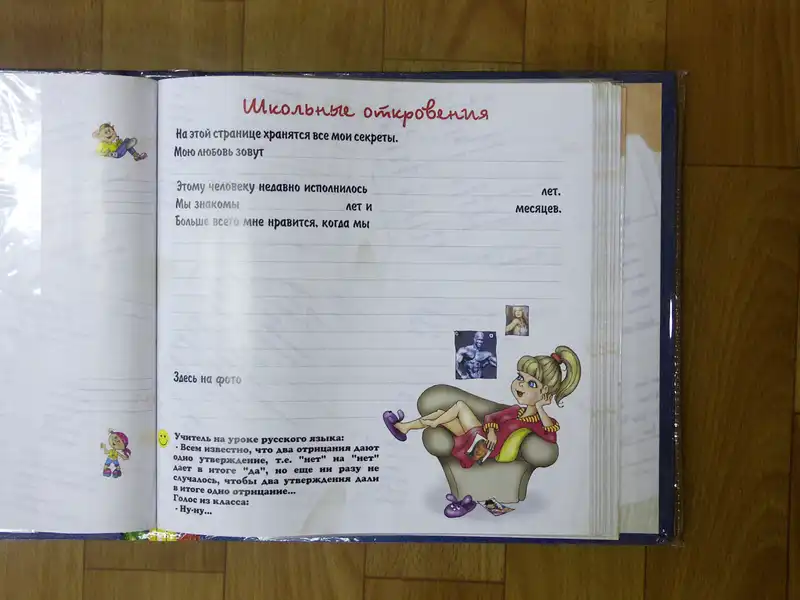 Школьные откровения
На этой странице хранятся все мои секреты.
Мою любовь зовут
Этому человеку недавно исполнилось лет.
Мы знакомы лет и месяцев.
Больше всего мне нравится, когда мы
Здесь на фото
Учитель на уроке русского языка:
- Всем известно, что два отрицания дают
одно утверждение, т.е. "нет" на "нет"
дает в итоге "да", но еще ни разу не
случалось, чтобы два утверждения дали
в итоге одно отрицание...
Голос из класса:
- Ну-ну...